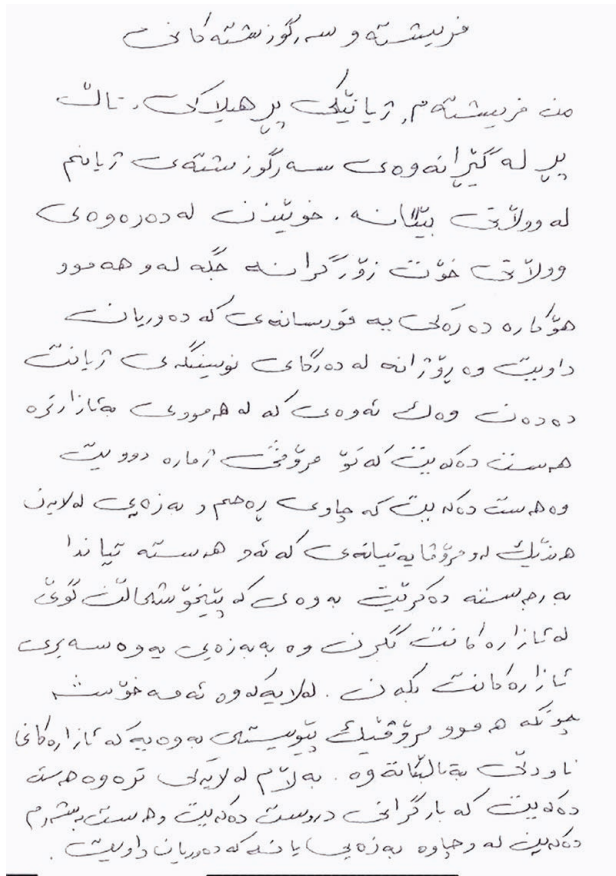 فریشتە و سەرگوزشتەکانی
من فریشتەم, ژیانێکی پڕ هیلاکی, تاڵ
پڕ لە گێڕانەوەی سەرگوزشتەی ژیانم
لە وولاتی بێگانە. خوێندن لە دەرەوەی
وولاتی خۆت زۆر گرانە جگە لەو هەموو
هۆکارە دەرەکی یە قورسانەی کە دەوریان
داویت وە ڕۆژانە لە دەرگای نوسینگەی ژیانت
دەدەن وەک ئەوەی کە لە هەمووی بەئازارترە
هەست دەکەیت کە تۆ مرۆڤی ژمارە دوویت
وە هەست دەکەیت کە چاوی ڕەحم و بەزەیی لەلایەن
هەندێک لەو مرۆڤایەتیانەی کە ئەو هەستە تیاندا
بەرجەستە دەکرێت بەوەی کە پێیخۆشحاڵن گوێ
لە ئازارەکانت بگرن وە بە بەزەیی یەوە سەیری
ئازارەکانت بکەن. لەلایەکەوە ئەمە خۆشە
چونکە هەموو مرۆڤێک پێویستی بەوەیە کە ئازارەکانی
ناودڵی بەتاڵبێتەوە. بەڵام لەلایەکی ترەوە هەست
دەکەیت کە بارگرانی دروست دەکەیت و هەست بەشەرم
دەکەین لەو چاوە بەزەیی یانەی کە دەوریان داویت.